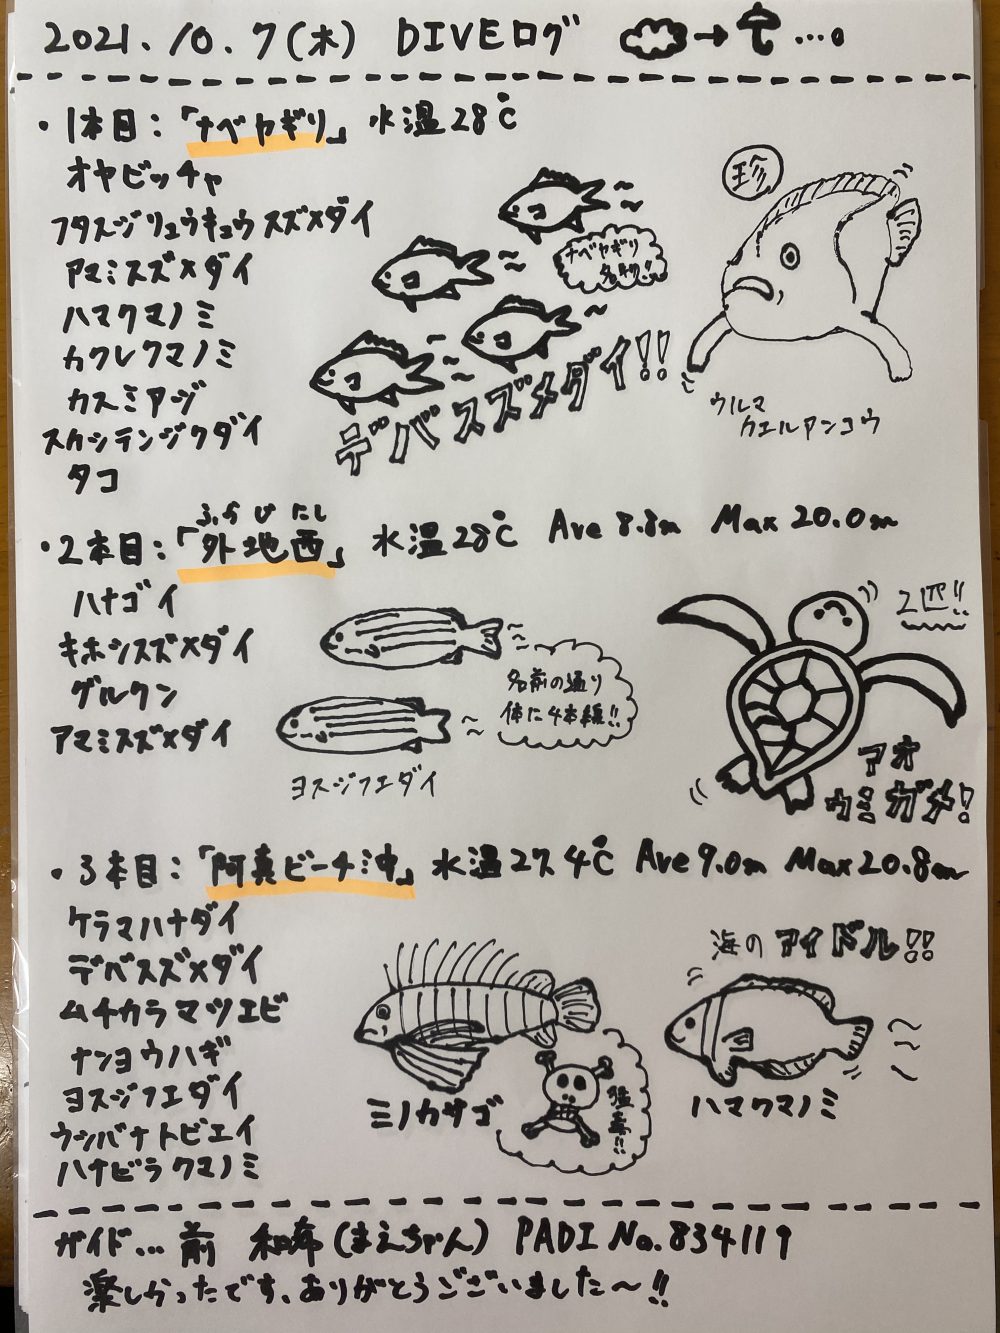 2021.10.7(木) DIVEログ →…。
・1本目：「ナベヤギリ」 水温28℃
オヤビッチャ
フタスジリュウキュウスズメダイ
アマミスズメダイ
ハマクマノミ
カクレクマノミ
カスミアジ
スカシテンジクダイ
タコ
ナベヤギリ
名物!!
デバスズメダイ!!
珍
ウルマ
カエルアンコウ
ふかじにし
・2本目：「外地西」 水温28℃ Ave 8.8m Max 20.0m
ハナゴイ
キホシスズメダイ
グルクン
アマミスズメダイ
名前の通り
体に4本線!!
ヨスジフエダイ
2匹!!
アオ
ウミガメ!
・3本目：「阿真ビーチ沖」 水温27.4℃ Ave 9.0m Max 20.8m
ケラマハナダイ
デバスズメダイ
ムチカラマツエビ
ナンヨウハギ
ヨスジフエダイ
ウシバナトビエイ
ハナビラクマノミ
ミノカサゴ
猛毒!!
海のアイドル!!
ハマクマノミ
ガイド…前 和希(まえちゃん) PADI No.834119
楽しかったです、ありがとうございました〜!!